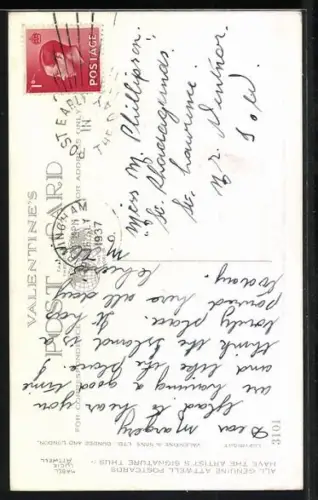 VALENTINE'S
POST CARD
FOR CORRESPONDENCE
FOR ADDRESS ONLY
POST EARLY
IN
THE DAY
1D
POSTAGE
1937
Miss M. Phillipson.
"St. Rhadagunds"
St. Lawrence
Nr. Ventnor.
I.o.W.
Dear Margery
Glad to hear you
are having a good time
and like the place. I
think the Island is a
lovely place. It has
poured here all day
today.
MABEL
LUCIE
ATTWELL
ALL GENUINE ATTWELL POSTCARDS
HAVE THE ARTIST'S SIGNATURE THUS:-
COPYRIGHT
VALENTINE & SONS, LTD. DUNDEE AND LONDON.
3101